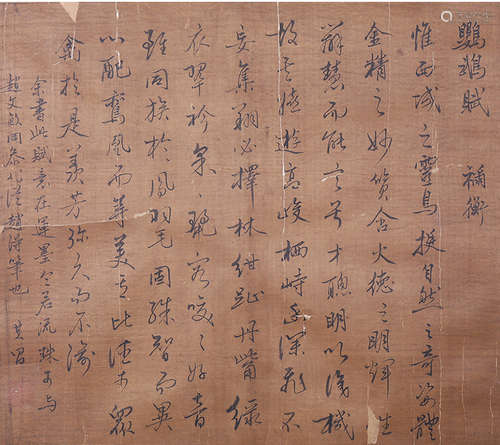 鸚鵡賦 禰衡
惟西域之靈鳥挺自然之奇姿體
金精之妙質含火德之明輝生
辯慧而能言兮才聰明以識機
故其嬉遊高峻栖峙幽深飛不
妄集翔必擇林紺趾丹嘴綠
衣翠衿采采麗容咬々好音
雖同族於羽毛固殊智而異
心配鸞凰而等美焉比德於眾
禽於是羨芳弥久而不渝
余書此賦意在運墨令若流珠不与
趙文敏同參從趙得筆也 其昌